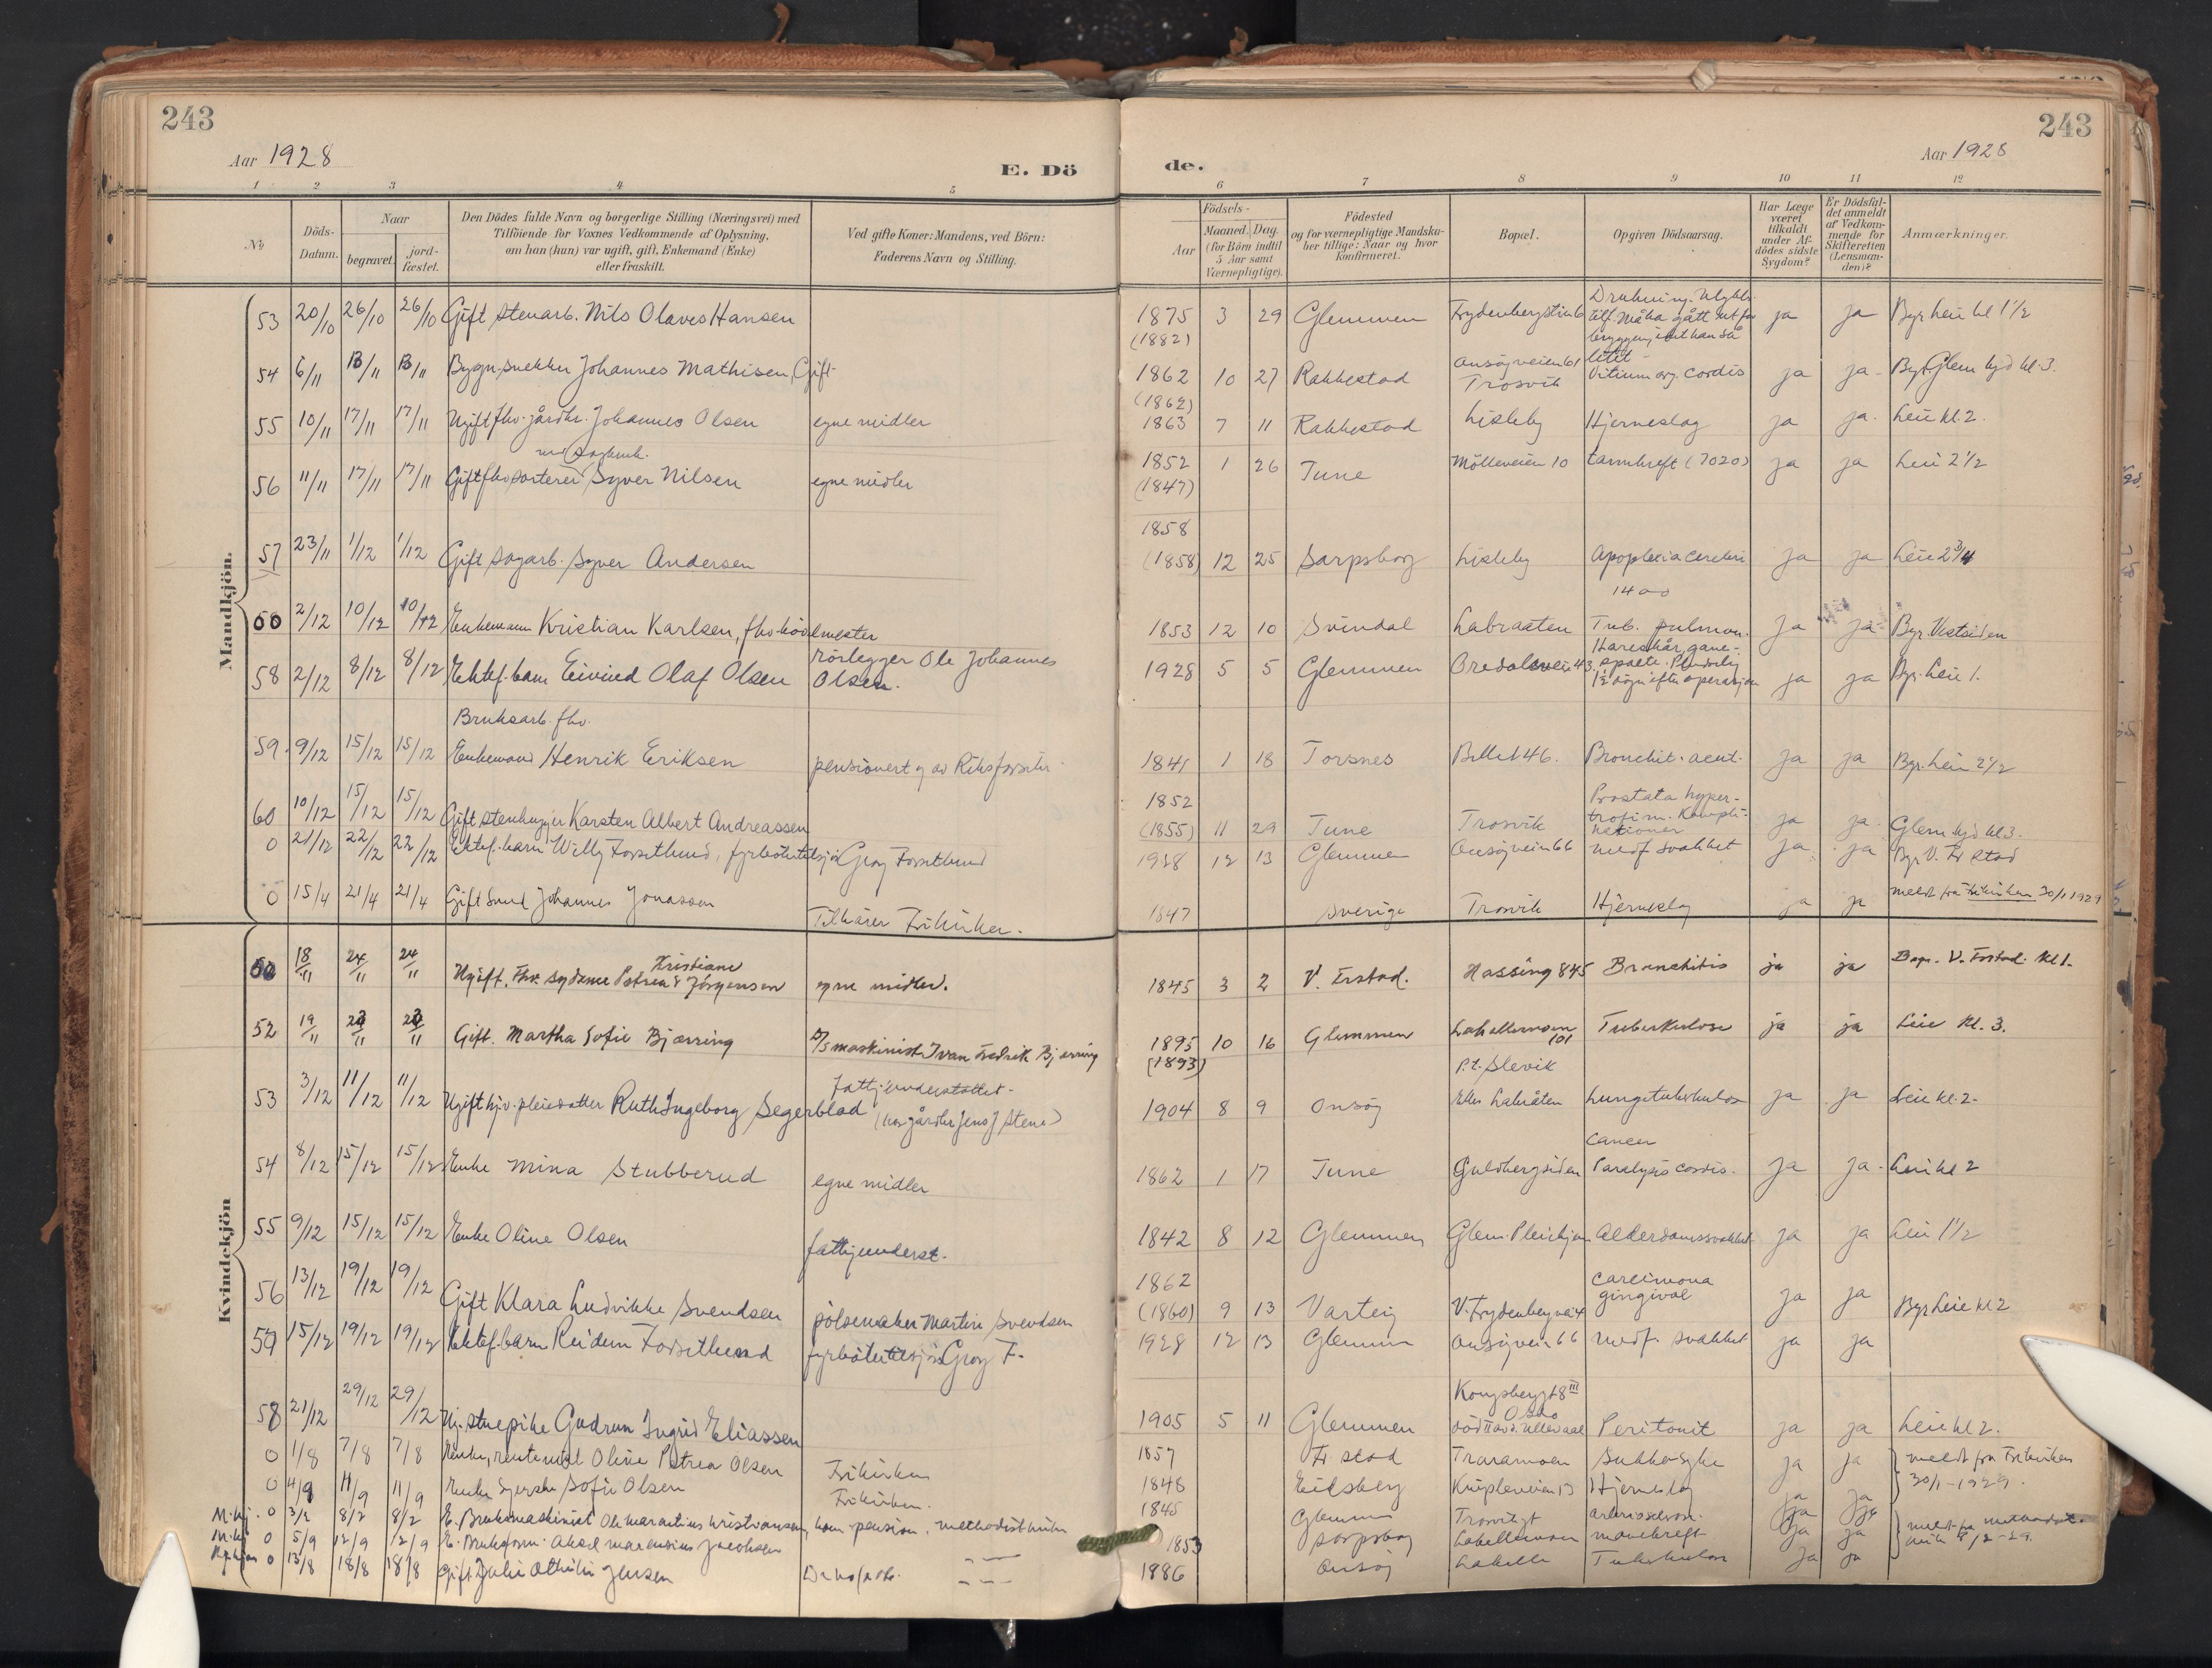 243
243
Aar 1928
E. Dö
de.
Aar 1928
1 2 3 4 5 6 7 8 9 10 11 12
№
Döds-Datum.
Naar
begravet.
jord-fæstet.
Den Dödes fulde Navn og borgerlige Stilling (Næringsvei) med
Tilföiende for Voxnes Vedkommende af Oplysning,
om han (hun) var ugift, gift, Enkemand (Enke)
eller fraskilt.
Ved gifte Koner: Mandens, ved Börn:
Faderens Navn og Stilling.
Födsels-
Aar
Maaned. Dag.
(for Börn indtil
5 Aar samt
Værnepligtige).
Födested
og for værnepligtige Mandska-
ber tillige: Naar og hvor
konfirmeret.
Bopæl.
Opgiven Dödsaarsag.
Har Læge
været
tilkaldt
under Af-
dödes sidste
Sygdom?
Er Dödsfal-
det anmeldt
af Vedkom-
mende for
Skifteretten
(Lensman-
den)?
Anmærkninger.
Mandkjön.
53 20/10 26/10 26/10 Gift stenarb. Nils Olaves Hansen 1875 (1882) 3 29 Glemmen ja ja
54 6/11 13/11 13/11 Bygn.snekker Johannes Mathisen, Gift 1862 (1862) 10 27 Rakkestad Onsøyveien 61 Trosvik Vitium org. cordis ja ja Byr. Glem kjd kl. 3.
55 10/11 17/11 17/11 Ugift fhv. gårdbr. Johannes Olsen egne midler 1863 7 11 Rakkestad Lisleby Hjerneslag ja ja Leie kl. 2.
56 11/11 17/11 17/11 Gift fhv. sorterer Syver Nilsen egne midler 1852 (1847) 1 26 Tune Mölleveien 10 tarmkreft (7020) ja ja Leie 2 1/2
57 23/11 1/12 1/12 Gift sagarb. Syver Andersen 1858 (1858) 12 25 Sarpsborg Lisleby Apoplexia cerebri ja ja Leie 2 3/4
2/12 10/12 10/12 Enkemann Kristian Karlsen, fhv. 1853 12 10 Svindal Labraaten Tub. pulmon. ja ja Byr. Vestsiden
58 2/12 8/12 8/12 Ektef. barn Eivind Olaf Olsen rörlegger Ole Johannes Olsen. 1928 5 5 Glemmen Hareskår, gane-spalte. 1/2 døgn efter operasjon ja ja Byr. Leie 1.
Bruksarb. fhv.
59 9/12 15/12 15/12 Enkemand Henrik Eriksen pensionert 1841 1 18 Torsnes Bronchit. acut. ja ja Byr. Leie 2 1/2
60 10/12 15/12 15/12 Gift stenhugger Karsten Albert Andreassen 1852 (1855) 11 29 Tune Trosvik Prostata hyper-trofi m. Kompli-kationer ja ja Glem kjd kl 3.
0 21/12 22/12 22/12 Ektef. barn Willy Forsetlund, fyrböter Georg Forsetlund 1928 12 13 Glemmen Onsøyveien 66 medf. svakhet ja ja Byr V. Fr stad
0 15/4 21/4 21/4 Gift Smed Johannes Jonassen Tilhører Frikirken. 1847 Sverige Trosvik Hjerneslag ja ja meldt fra Frikirken 30/1 1929
Kvindekjön
18/11 24/11 24/11 Ugift. Fhv. sydame Petrea Kristiane Jörgensen egne midler. 1845 3 2 V. Frstad. Hassing 845 Bronchitis ja ja Begr. V. Frstad. Kl 1.
52 19/11 Gift. Martha Sofie Bjærring maskinist Ivan Fredrik Bjerring 1895 (1893) 10 16 Glemmen Lahellemoen 101 Tuberkulose ja ja Leie Kl. 3.
53 3/12 11/12 11/12 Ugift hjv. pleiedatter Ruth Ingeborg Segerblad fattigunderstøttet (hos gårdbr Jens J Stene) 1904 8 9 Onsøy P.t. Slevik Lungetuberkulose ja ja Leie kl. 2.
54 8/12 15/12 15/12 Enke Mina Stubberud egne midler 1862 1 17 Tune Guldbergsiden cancer Paralysis cordis. ja ja Leie kl 2
55 9/12 15/12 15/12 Enke Oline Olsen fattigunderst. 1842 8 12 Glemmen Glem. Pleiehjem Alderdomssvakhet ja ja Leie 1 1/2
56 13/12 19/12 19/12 Gift Klara Ludvikke Svendsen pölsemaker Martin Svendsen 1862 (1860) 9 13 Varteig V. Frydenbergvei 4 Carcinoma gingivae ja ja Byr Leie kl 2
15/12 19/12 19/12 Ektef. barn Reidun Forsetlund fyrböter Georg F. 1928 12 13 Glemmen Onsøyveien 66 medf. svakhet ja ja
58 21/12 29/12 29/12 Ug. stuepike Gudrun Ingrid Eliassen 1905 5 11 Glemmen Kongsberggt 8 III Oslo död II avd. Ullevaal Peritonit ja ja Leie kl 2.
0 1/8 7/8 7/8 Enke, Oline Petrea Olsen Frikirken 1857 Fr stad Traramoen Sukkersyke ja ja meldt fra Frikirken 30/1-1929.
0 4/9 11/9 11/9 Enke Syerske Sofie Olsen Frikirken. 1848 Eidsberg Hjerneslag ja ja
M.kj. 0 3/2 8/2 8/2 E. Bruksmaskinist Ole Marentius Kristiansen, kom. pension. methodistkirken 1845 Glemmen Trosvikgt ja ja meldt fra methodist-
M.kj 0 5/9 12/9 12/9 E. Aksel Marensius Jacobsen 1853 Sarpsborg Lahellemoen mavekreft ja ja
0 13/8 18/8 18/8 Gift Julie Othilie Jensen 1886 Onsøy Lahelle Tuberkulose ja ja